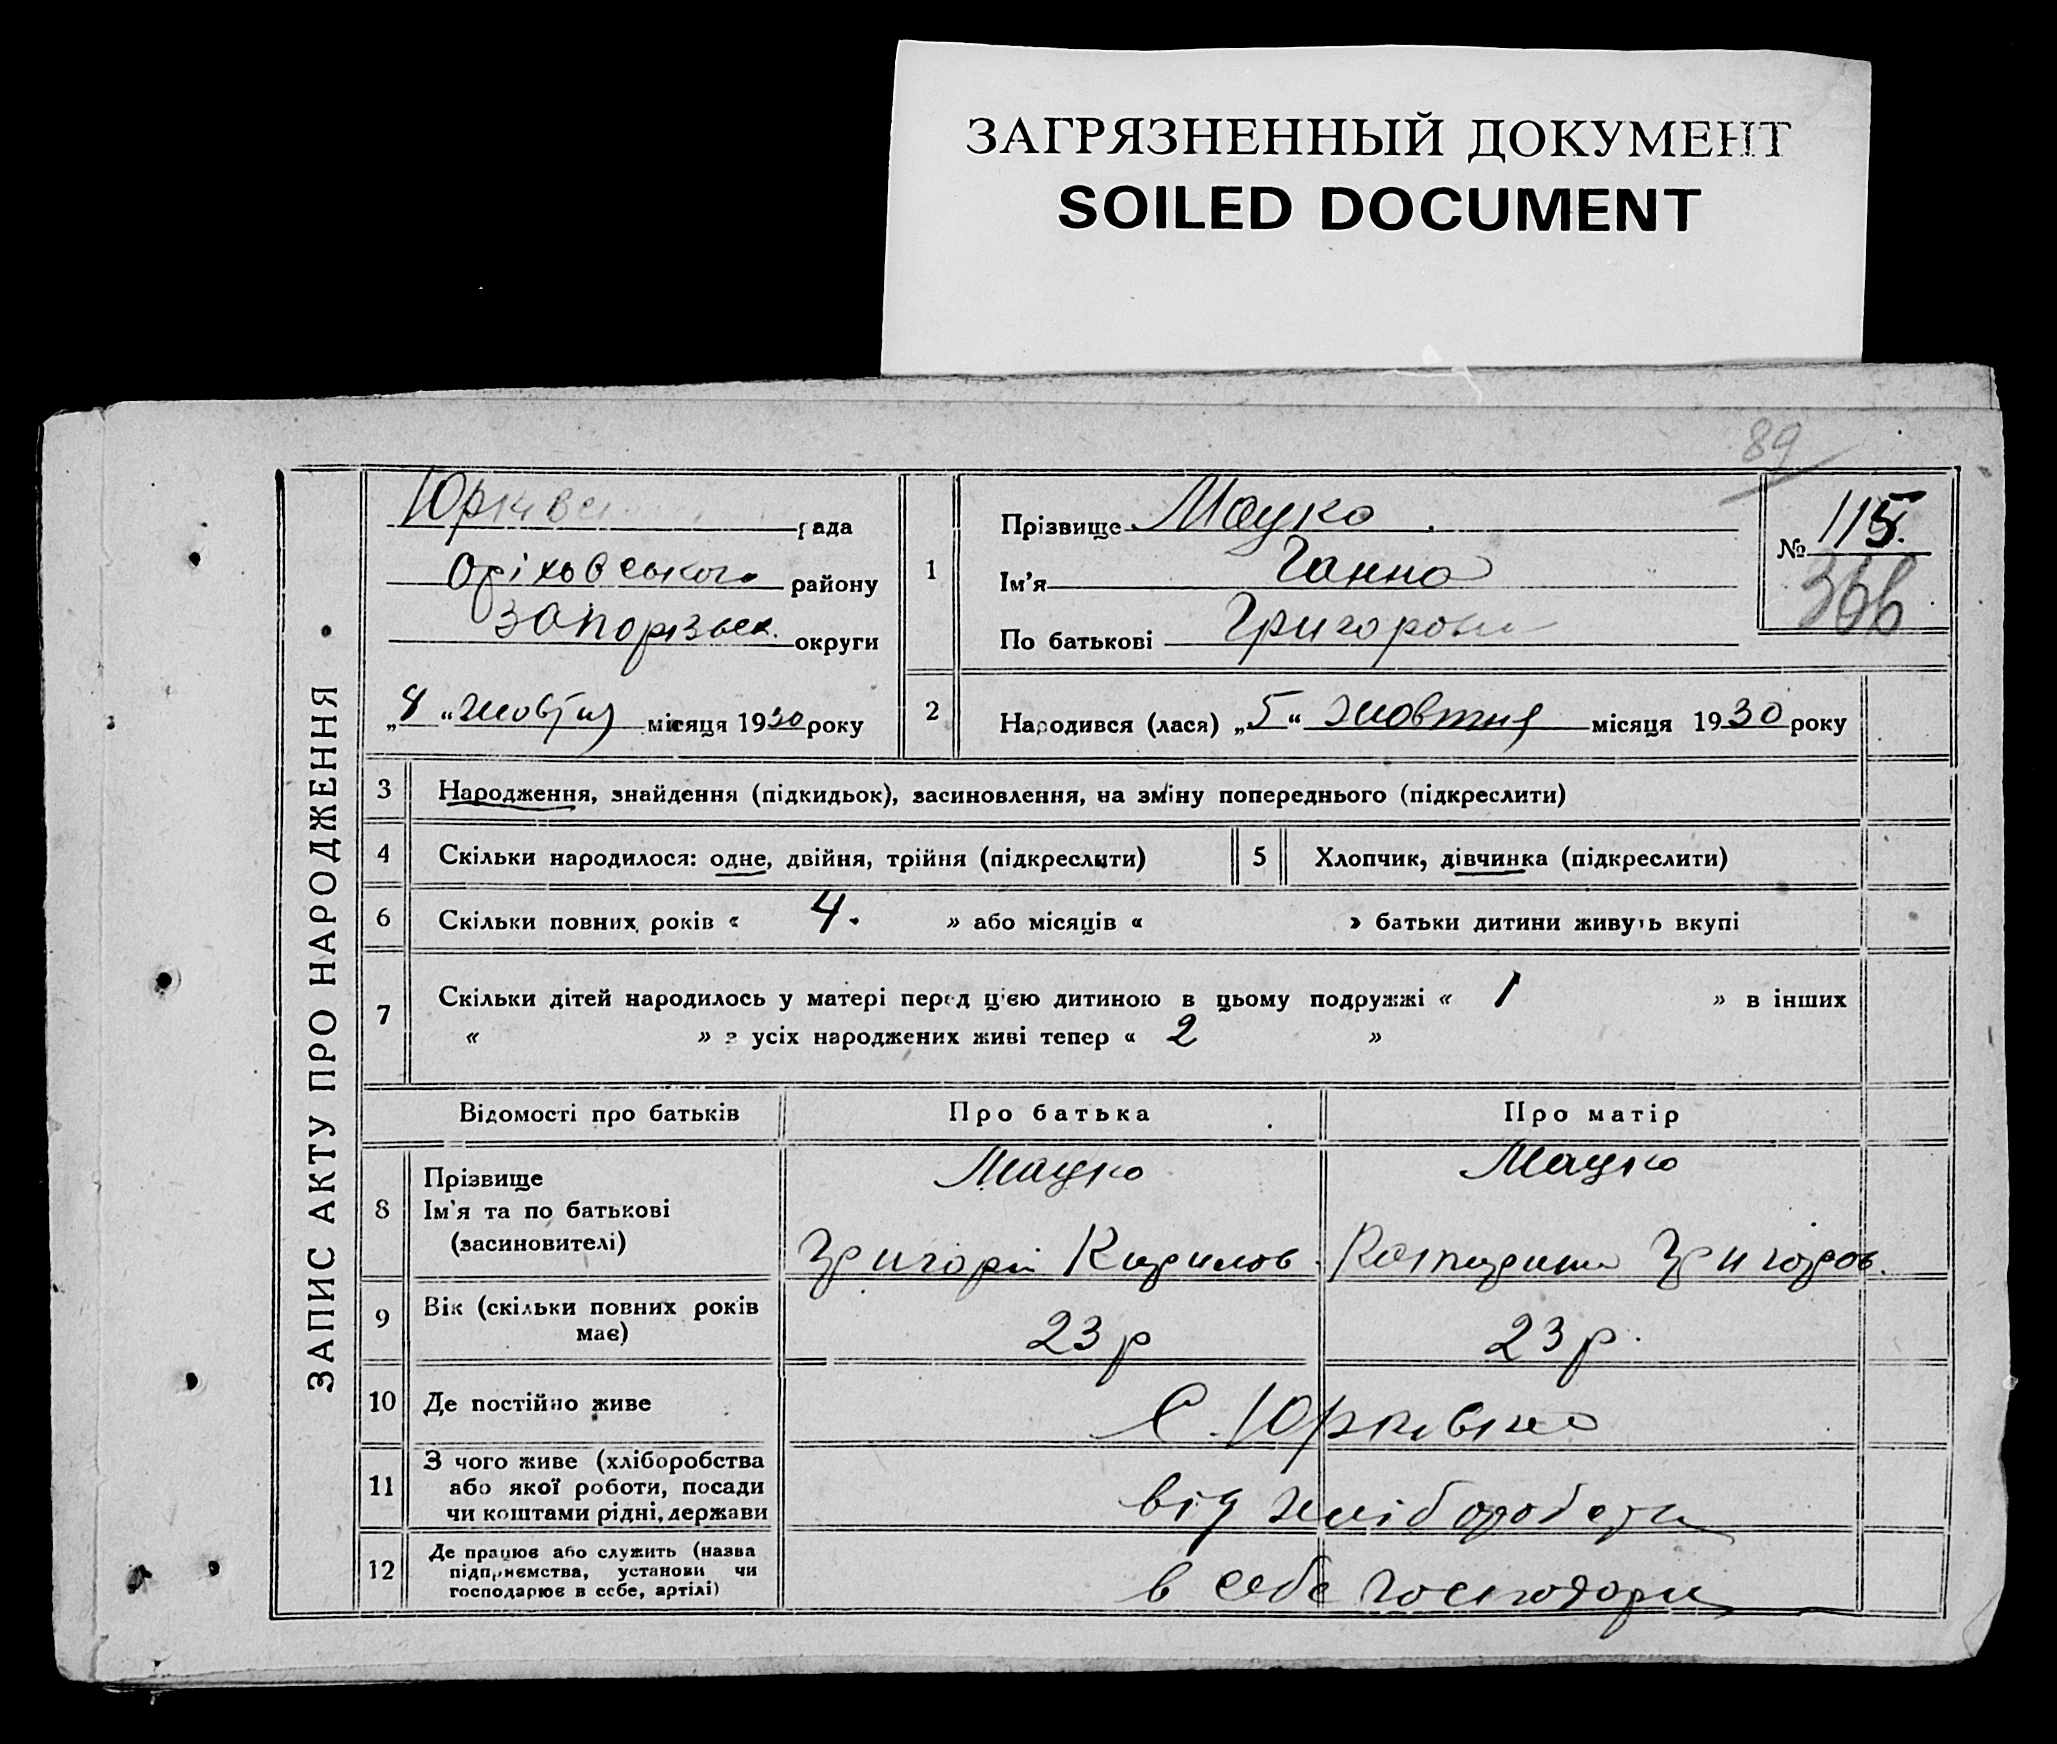 ЗАГРЯЗНЕННЫЙ ДОКУМЕНТ
SOILED DOCUMENT
89
ЗАПИС АКТУ ПРО НАРОДЖЕННЯ
рада
Оріхівського району
Запорізьк. округи
„8“ жовтня місяця 1930 року
1
Прізвище Мацко
Ім'я Ганна
По батькові Григоровн
№ 115.
366
2
Народився (лася) „5“ жовтня місяця 1930 року
3 Народження, знайдення (підкидьок), засиновлення, на зміну попереднього (підкреслити)
4 Скільки народилося: одне, двійня, трійня (підкреслити) 5 Хлопчик, дівчинка (підкреслити)
6 Скільки повних років « 4. » або місяців « » батьки дитини живуть вкупі
7 Скільки дітей народилось у матері перед ц'ею дитиною в цьому подружжі « 1 » в інших
« » з усіх народжених живі тепер « 2 »
Відомості про батьків Про батька Про матір
8 Прізвище Мацко Мацко
Ім'я та по батькові
(засиновителі) Григорій Кирилов Григоров.
9 Вік (скільки повних років
має) 23 р 23 р.
10 Де постійно живе с. Юрківка
11 З чого живе (хліборобства
або якої роботи, посади
чи коштами рідні, держави від хліборобств
12 Де працює або служить (назва
підприємства, установи чи
господарює в себе, артілі) в себе господ